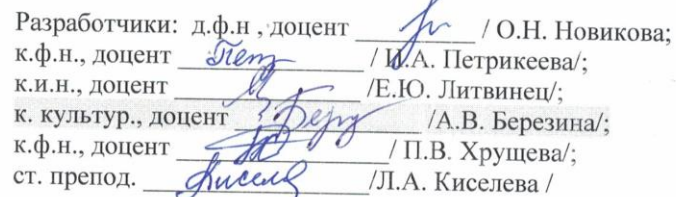 Разработчики: д.ф.н , доцент / О.Н. Новикова;
к.ф.н., доцент / И.А. Петрикеева/;
к.и.н., доцент /Е.Ю. Литвинец/;
к. культур., доцент /А.В. Березина/;
к.ф.н., доцент / П.В. Хрущева/;
ст. препод. /Л.А. Киселева /